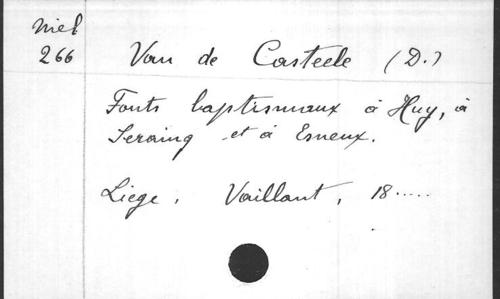 Miel
266
Van de Casteele (D.)
Fonts baptismaux à Huy, à
Seraing et à Esneux.
Liege, Vaillant, 18.....